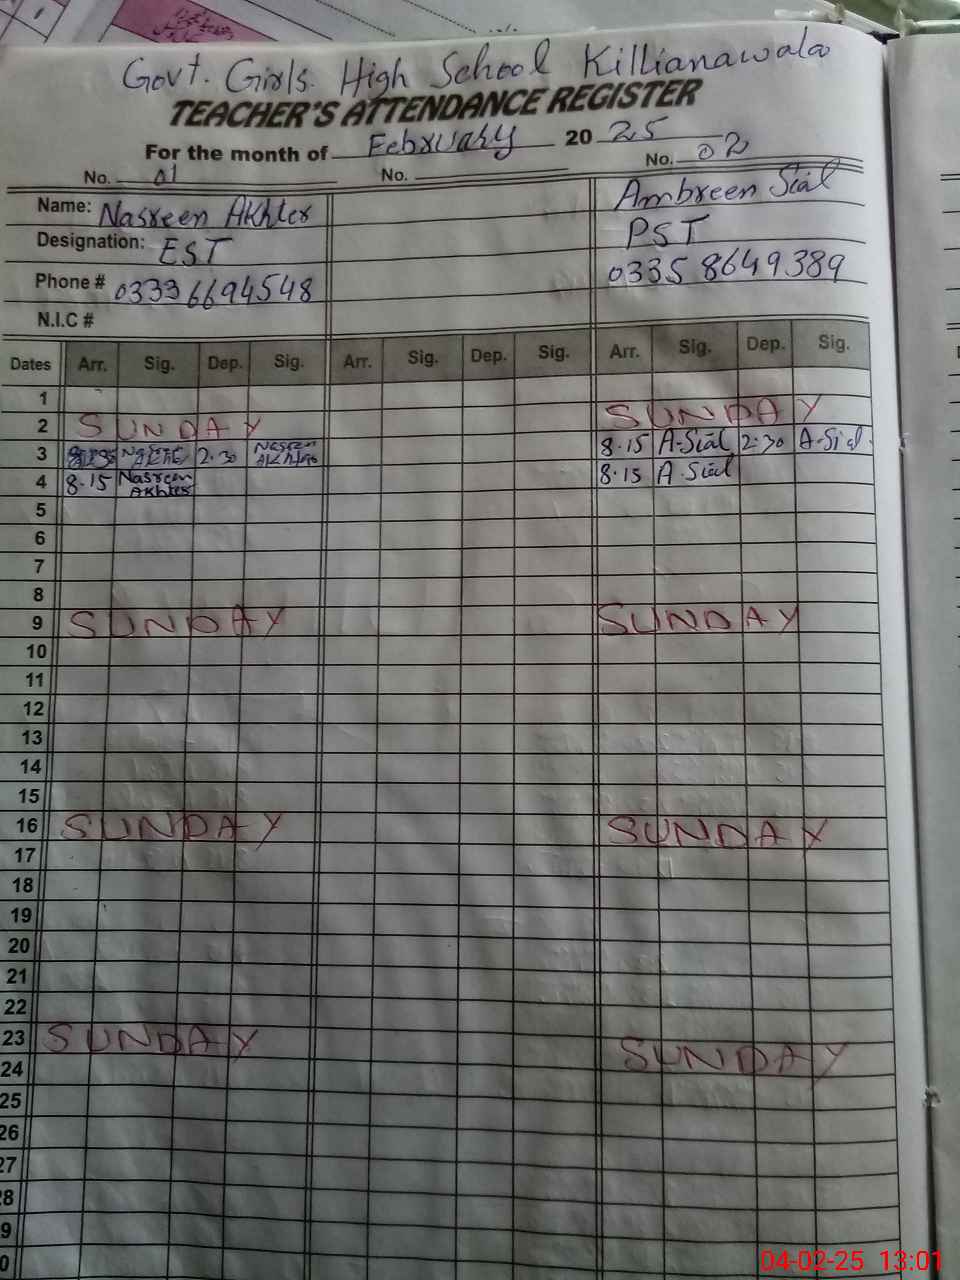 Govt. Girls. High School Killianawala
TEACHER'S ATTENDANCE REGISTER
For the month of February 2025
No. 01 No. No. 02
Name: Nasreen Akhter Ambreen Sial
Designation: EST PST
Phone # 03336694548 03358649389
N.I.C #
Dates Arr. Sig. Dep. Sig. Arr. Sig. Dep. Sig. Arr. Sig. Dep. Sig.
1
2 SUNDAY SUNDAY
3 Nasreen Akhter 2.30 Nasreen Akhter 8.15 A-Sial 2:30 A-Sial.
4 8.15 Nasreen Akhter 8.15 A Sial
5
6
7
8
9 SUNDAY SUNDAY
10
11
12
13
14
15
16 SUNDAY SUNDAY
17
18
19
20
21
22
23 SUNDAY SUNDAY
24
25
26
27
28
9
0
04-02-25 13:01